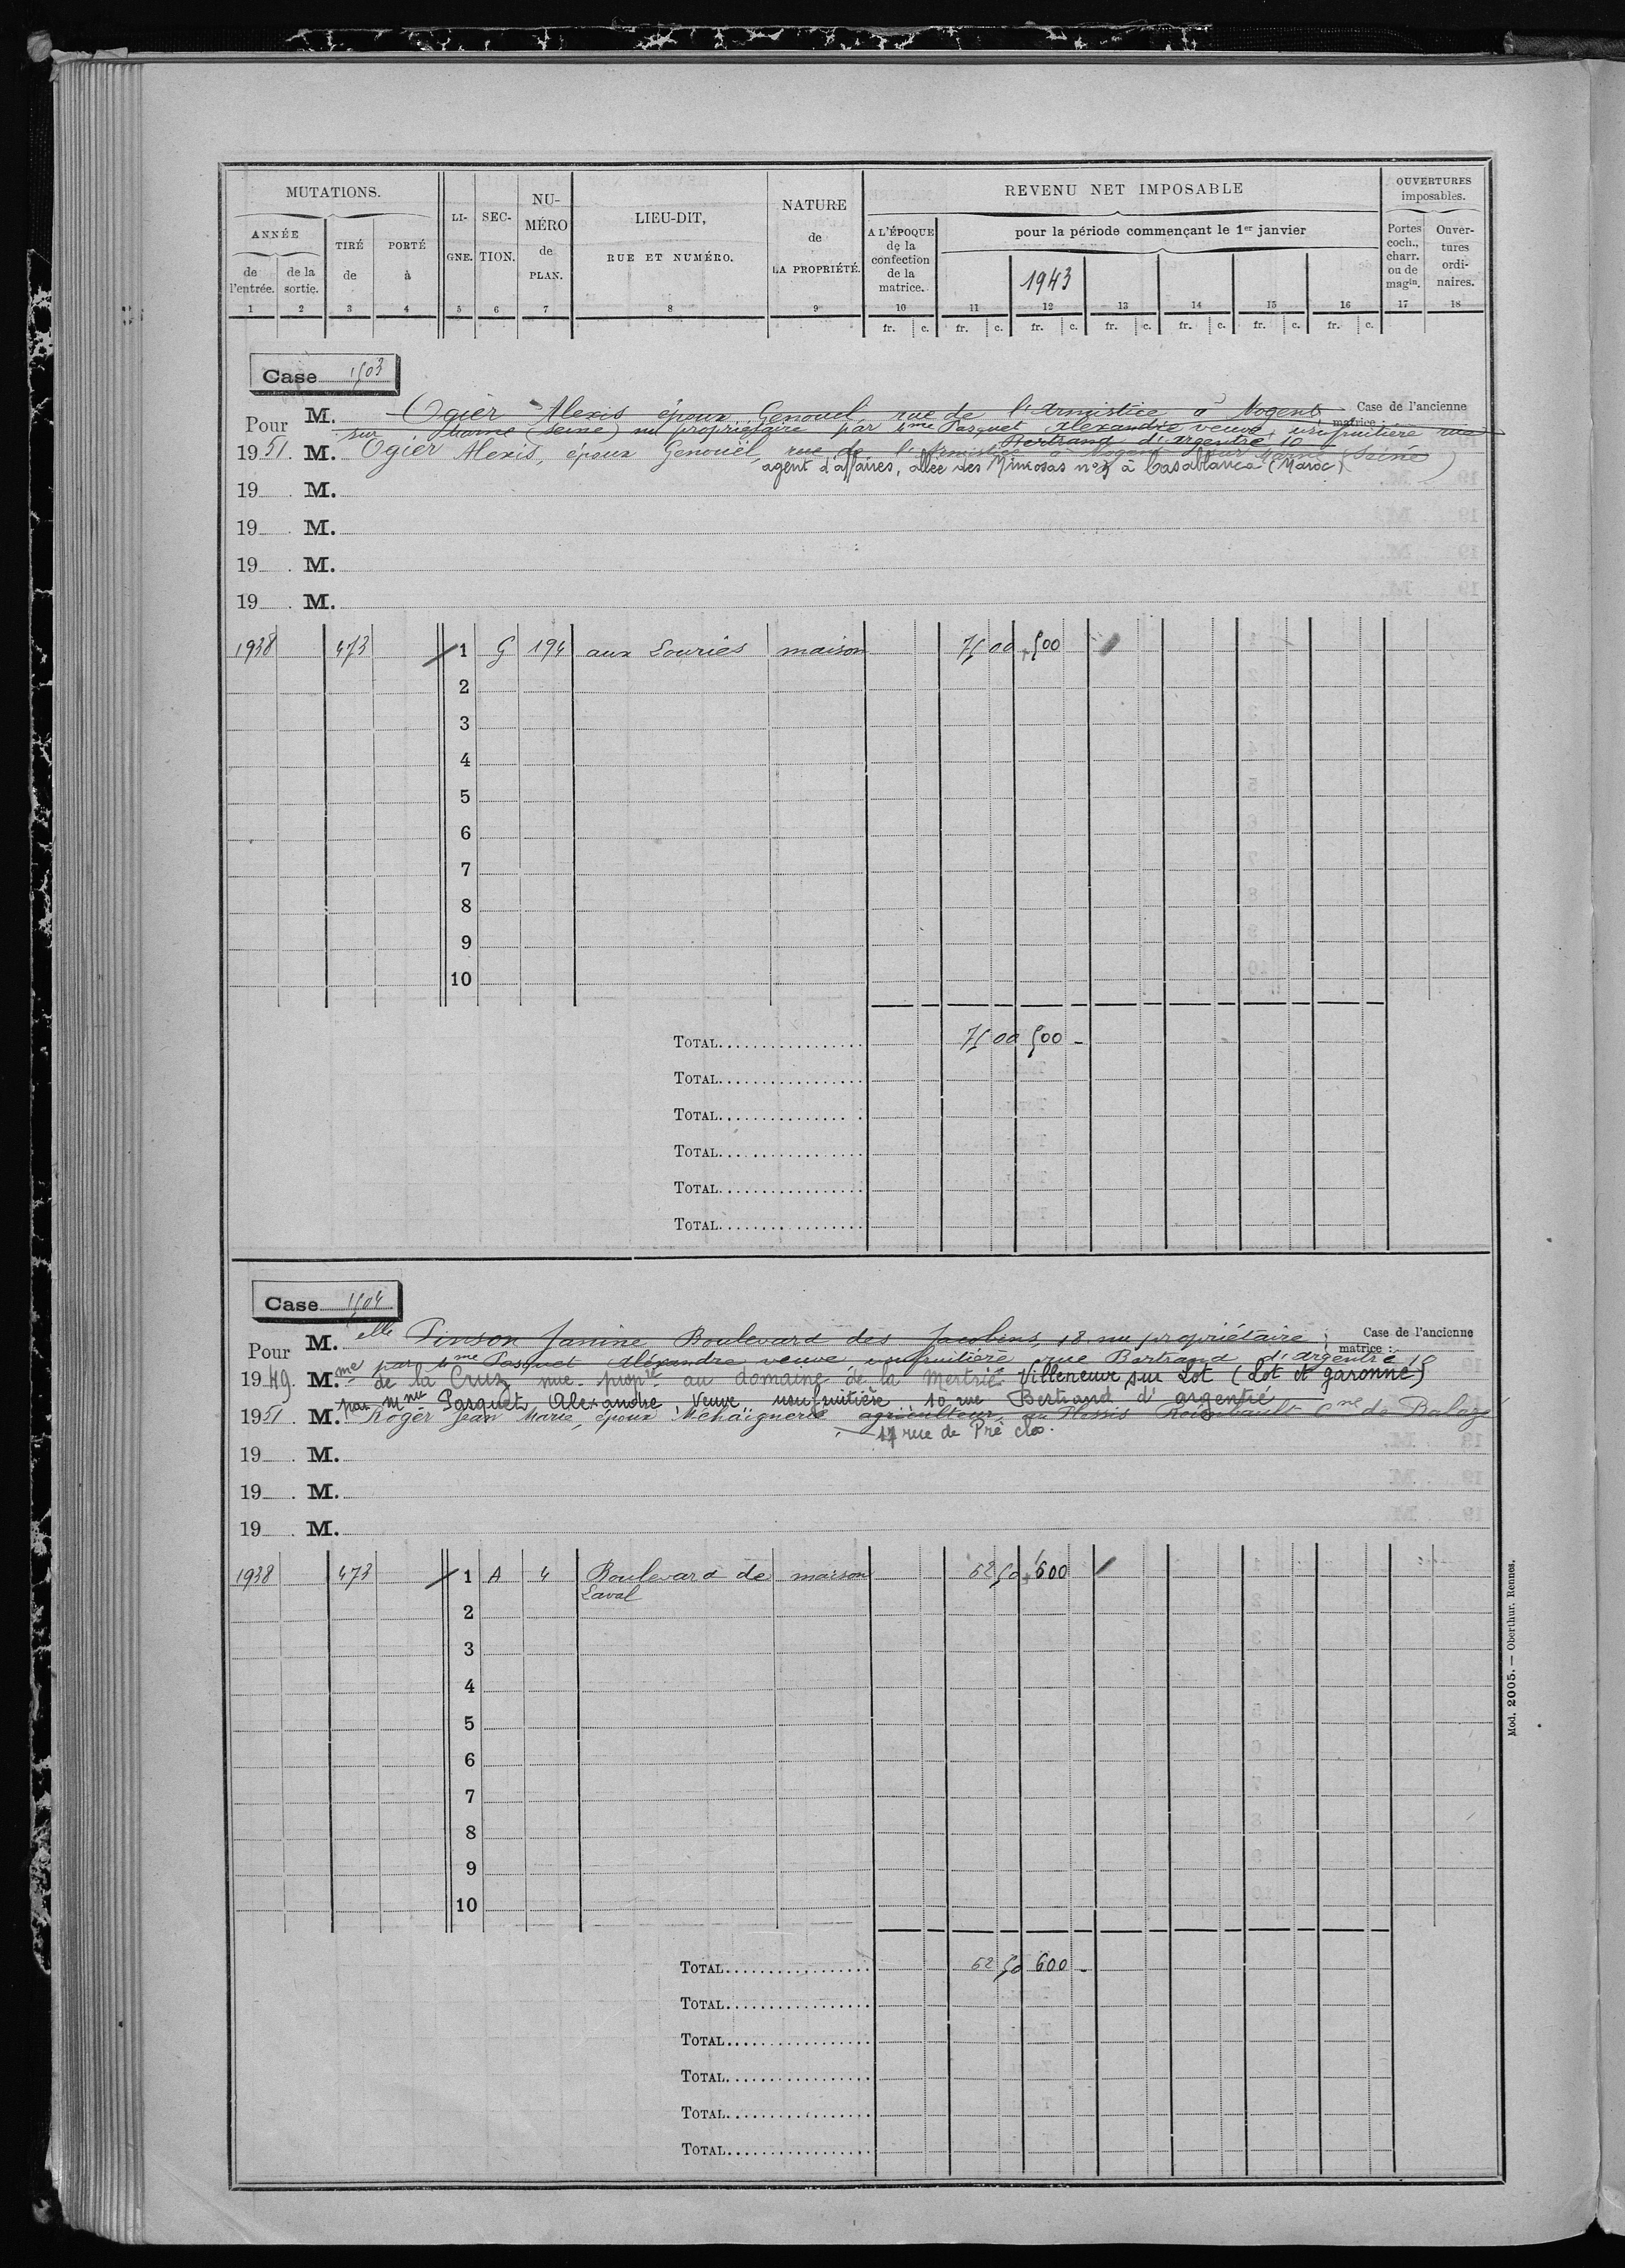 MUTATIONS.
ANNÉE
de l'entrée.
de la sortie.
TIRÉ de
PORTÉ à
LI-GNE.
SEC-TION.
NU-MÉRO de PLAN.
LIEU-DIT, RUE ET NUMÉRO.
NATURE de LA PROPRIÉTÉ.
REVENU NET IMPOSABLE
A L'ÉPOQUE de la confection de la matrice.
pour la période commençant le 1er janvier
1943
OUVERTURES imposables.
Portes coch., charr. ou de magin.
Ouver-tures ordi-naires.
1 2 3 4 5 6 7 8 9 10 11 12 13 14 15 16 17 18
fr. c. fr. c. fr. c. fr. c. fr. c. fr. c. fr. c.
Case 1503
Case de l'ancienne matrice :
Pour M. Ogier Alexis époux Genouel rue de l'Armistice à Nogent
sur Marne (Seine) nu propriétaire par Mme Pasquet Alexandre veuve, usufruitière rue
Bertrand d'argentré 10
1951. M. Ogier Alexis, époux Genouël, rue de l'Armistice à Nogent sur Marne (Seine)
agent d'affaires, allée des Mimosas à Casablanca (Maroc)
19 . M.
19 . M.
19 . M.
19 . M.
1938 473 1 G 194 aux Souries maison 75 00 500
2
3
4
5
6
7
8
9
10
TOTAL 75 00 500 -
TOTAL
TOTAL
TOTAL
TOTAL
TOTAL
Case 1504
Case de l'ancienne matrice :
Pour M.elle Pinson Janine Boulevard des Jacobins, 18. nu propriétaire
par Mme Pasquet Alexandre veuve, usufruitière rue Bertrand d'argentré 10
1949. M.me de la Cruz nue-propre au domaine de la Villeneuve sur Lot (Lot et garonne)
par Mme Pasquet Alexandre, Veuve usufruitière 10 rue Bertrand d'argentré
1951. M. Roger Jean Marie, époux Méhaignerie agriculteur, au Plessis Cne de Balazé
17 rue de Pré clos.
19 . M.
19 . M.
19 . M.
1938 473 1 A 4 Boulevard de maison 62 50 600
Laval
2
3
4
5
6
7
8
9
10
TOTAL 62 50 600 -
TOTAL
TOTAL
TOTAL
TOTAL
TOTAL
Mod. 2005. — Oberthur, Rennes.